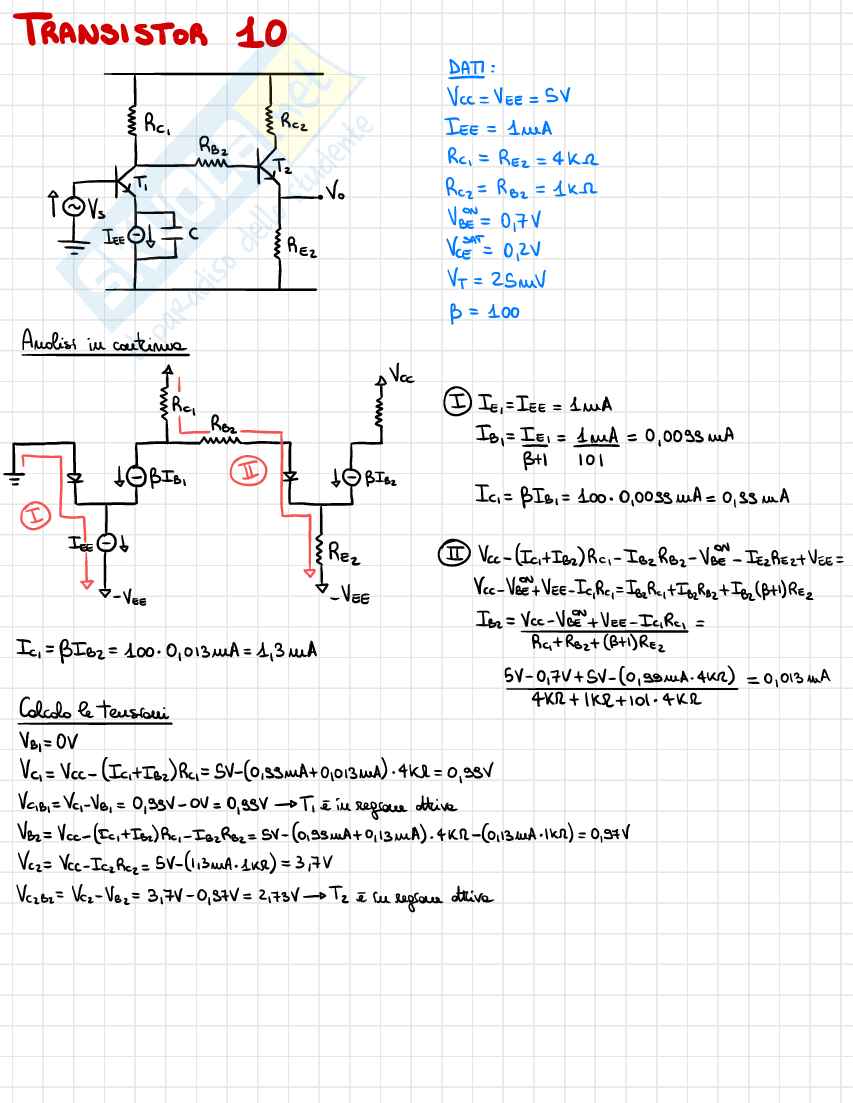 TRANSISTOR 10
RC1
RC2
RB2
T1
T2
Vo
Vs
IEE
C
RE2
DATI:
VCC = VEE = 5V
IEE = 1mA
RC1 = RE2 = 4KΩ
RC2 = RB2 = 1KΩ
VBE^ON = 0,7V
VCE^SAT = 0,2V
VT = 25mV
β = 100
Analisi in continua
RC1
RB2
VCC
βIB1
II
βIB2
I
IEE
RE2
-VEE
-VEE
I IE1 = IEE = 1mA
IB1 = IE1/β+1 = 1mA/101 = 0,0099 mA
IC1 = βIB1 = 100 · 0,0099 mA = 0,99 mA
II VCC - (IC1 + IB2) RC1 - IB2 RB2 - VBE^ON - IE2 RE2 + VEE =
VCC - VBE^ON + VEE - IC1 RC1 = IB2 RC1 + IB2 RB2 + IB2 (β+1) RE2
IB2 = VCC - VBE^ON + VEE - IC1 RC1 / RC1 + RB2 + (β+1) RE2 =
5V - 0,7V + 5V - (0,99mA · 4KΩ) / 4KΩ + 1KΩ + 101 · 4KΩ = 0,013 mA
IC1 = βIB2 = 100 · 0,013 mA = 1,3 mA
Calcolo le tensioni
VB1 = 0V
VC1 = VCC - (IC1 + IB2) RC1 = 5V - (0,99mA + 0,013mA) · 4KΩ = 0,99V
VC1B1 = VC1 - VB1 = 0,99V - 0V = 0,99V → T1 è in regione attiva
VB2 = VCC - (IC1 + IB2) RC1 - IB2 RB2 = 5V - (0,99mA + 0,13mA) · 4KΩ - (0,13mA · 1KΩ) = 0,97V
VC2 = VCC - IC2 RC2 = 5V - (1,3mA · 1KΩ) = 3,7V
VC2B2 = VC2 - VB2 = 3,7V - 0,97V = 2,73V → T2 è in regione attiva